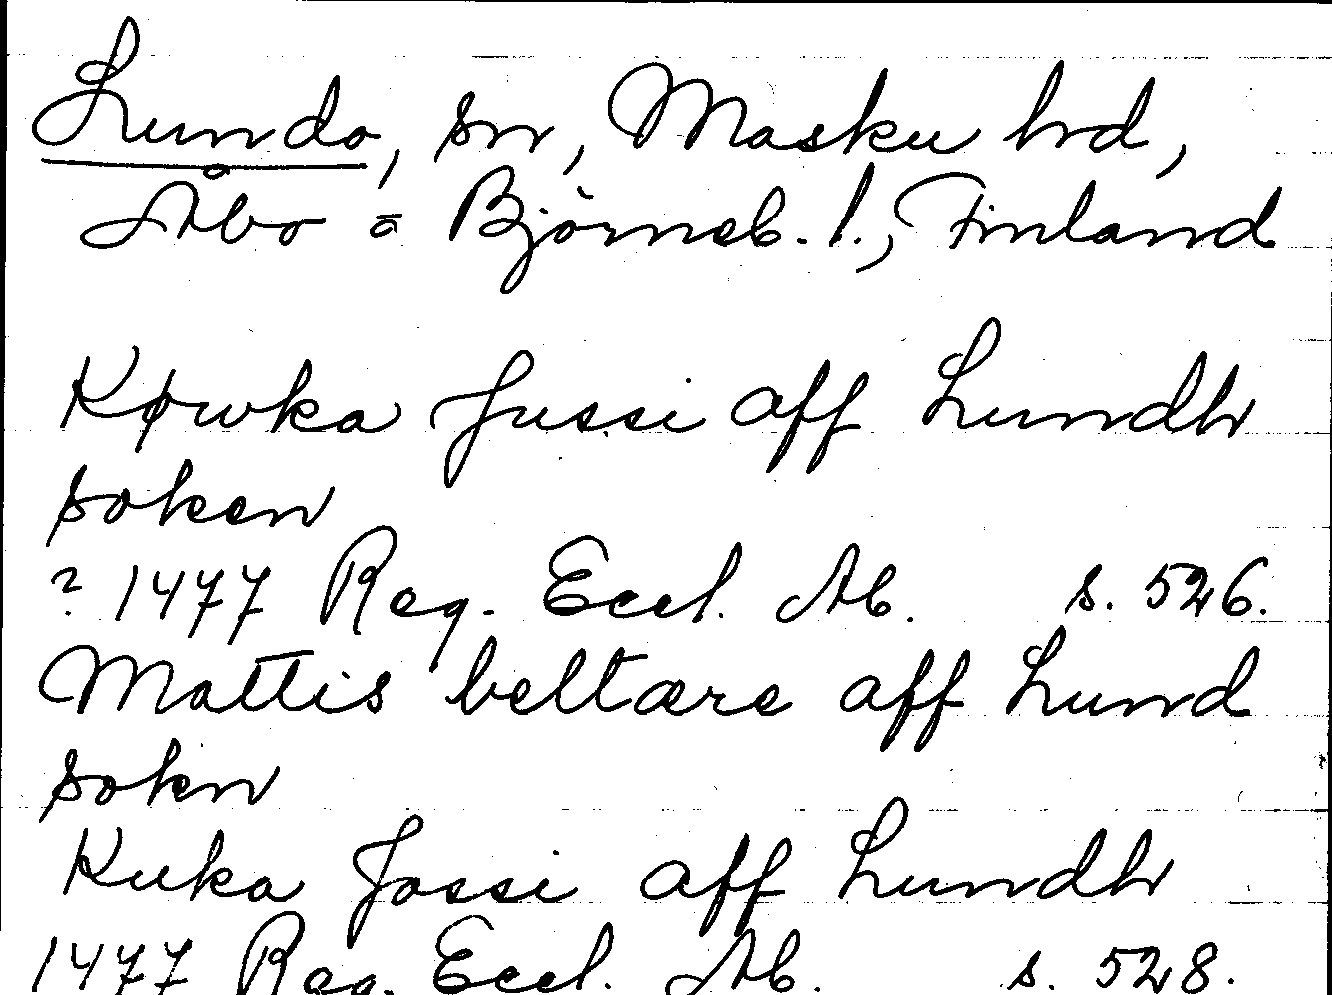 Lundo, sn, Masku hrd,
Åbo = Björneb. l., Finland
Køwka Jussi aff Lundh
soken
? 1477 Reg. Eccl. Ab. s. 526.
Mattis beltære aff Lund
sokn
Kuka Jossi aff Lundh
1477 Reg. Eccl. Ab. s. 528.